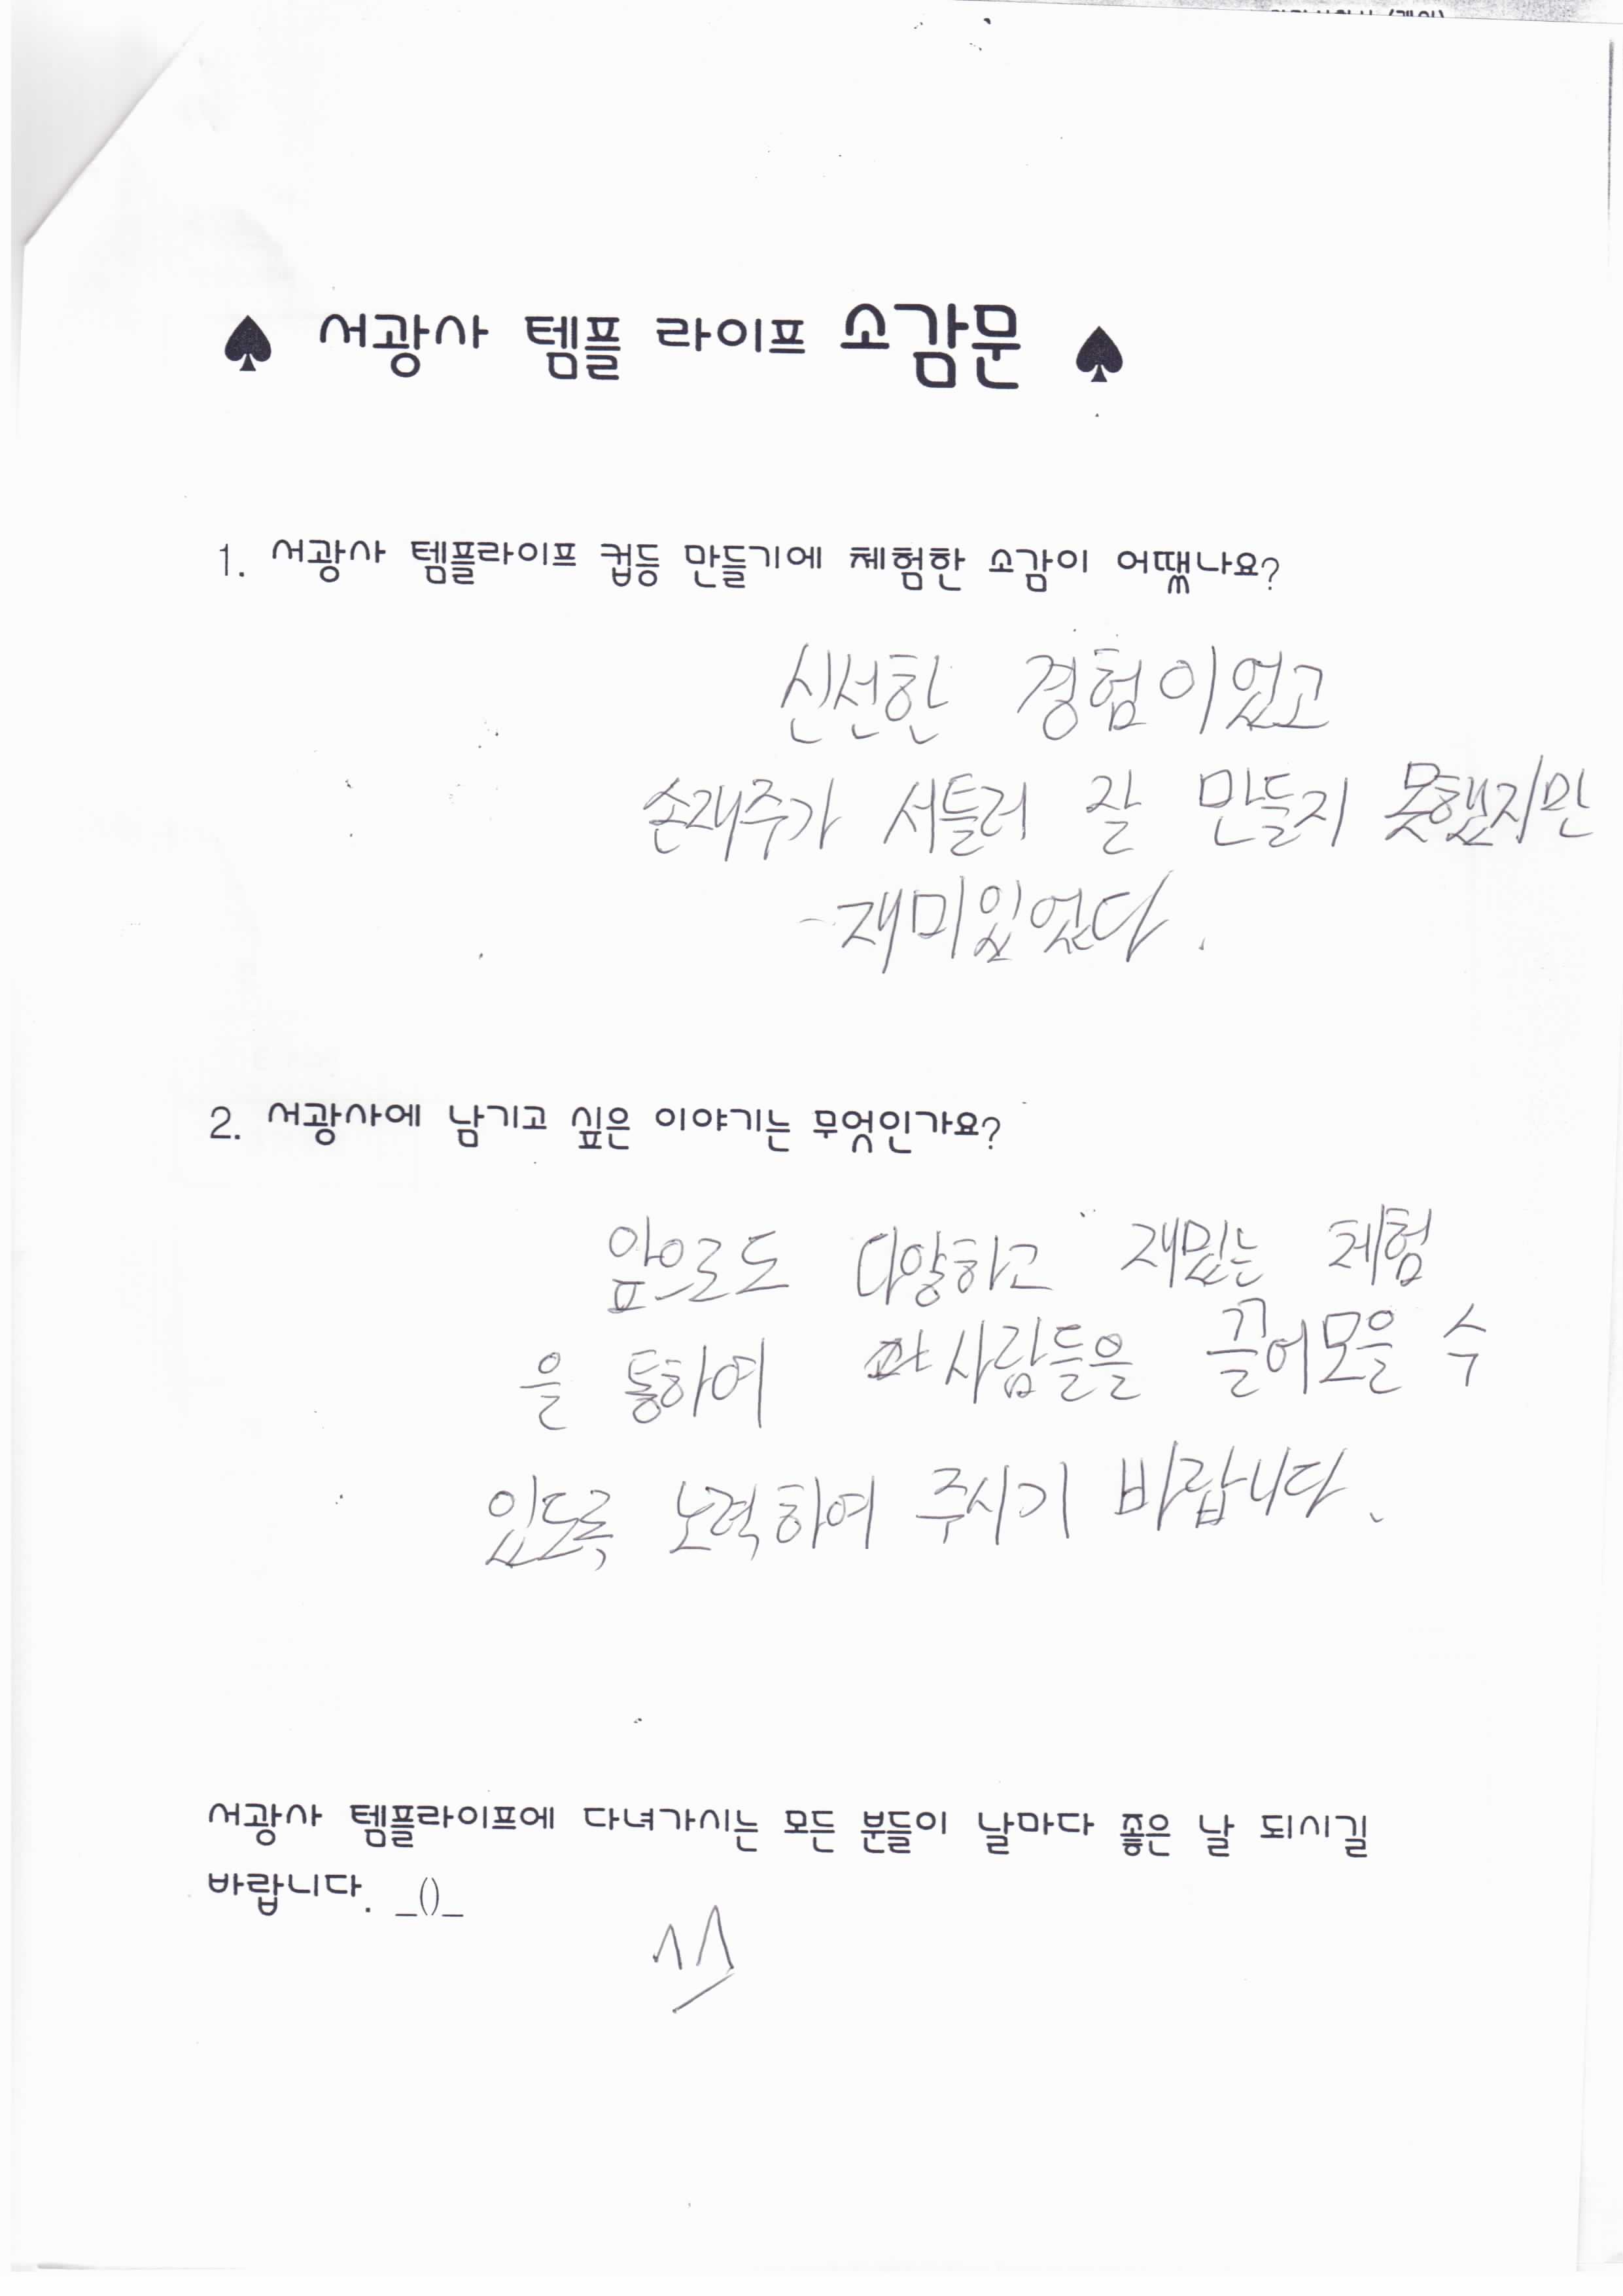 ♠ 서광사 템플 라이프 소감문 ♠
1. 서광사 템플라이프 컵등 만들기에 체험한 소감이 어땠나요?
신선한 경험이었고
손재주가 서툴러 잘 만들지 못했지만
재미있었다.
2. 서광사에 남기고 싶은 이야기는 무엇인가요?
앞으로도 다양하고 재밌는 체험
을 통하여 사람들을 끌어모을 수
있도록 노력하여 주시기 바랍니다.
서광사 템플라이프에 다녀가시는 모든 분들이 날마다 좋은 날 되시길
바랍니다. _()_